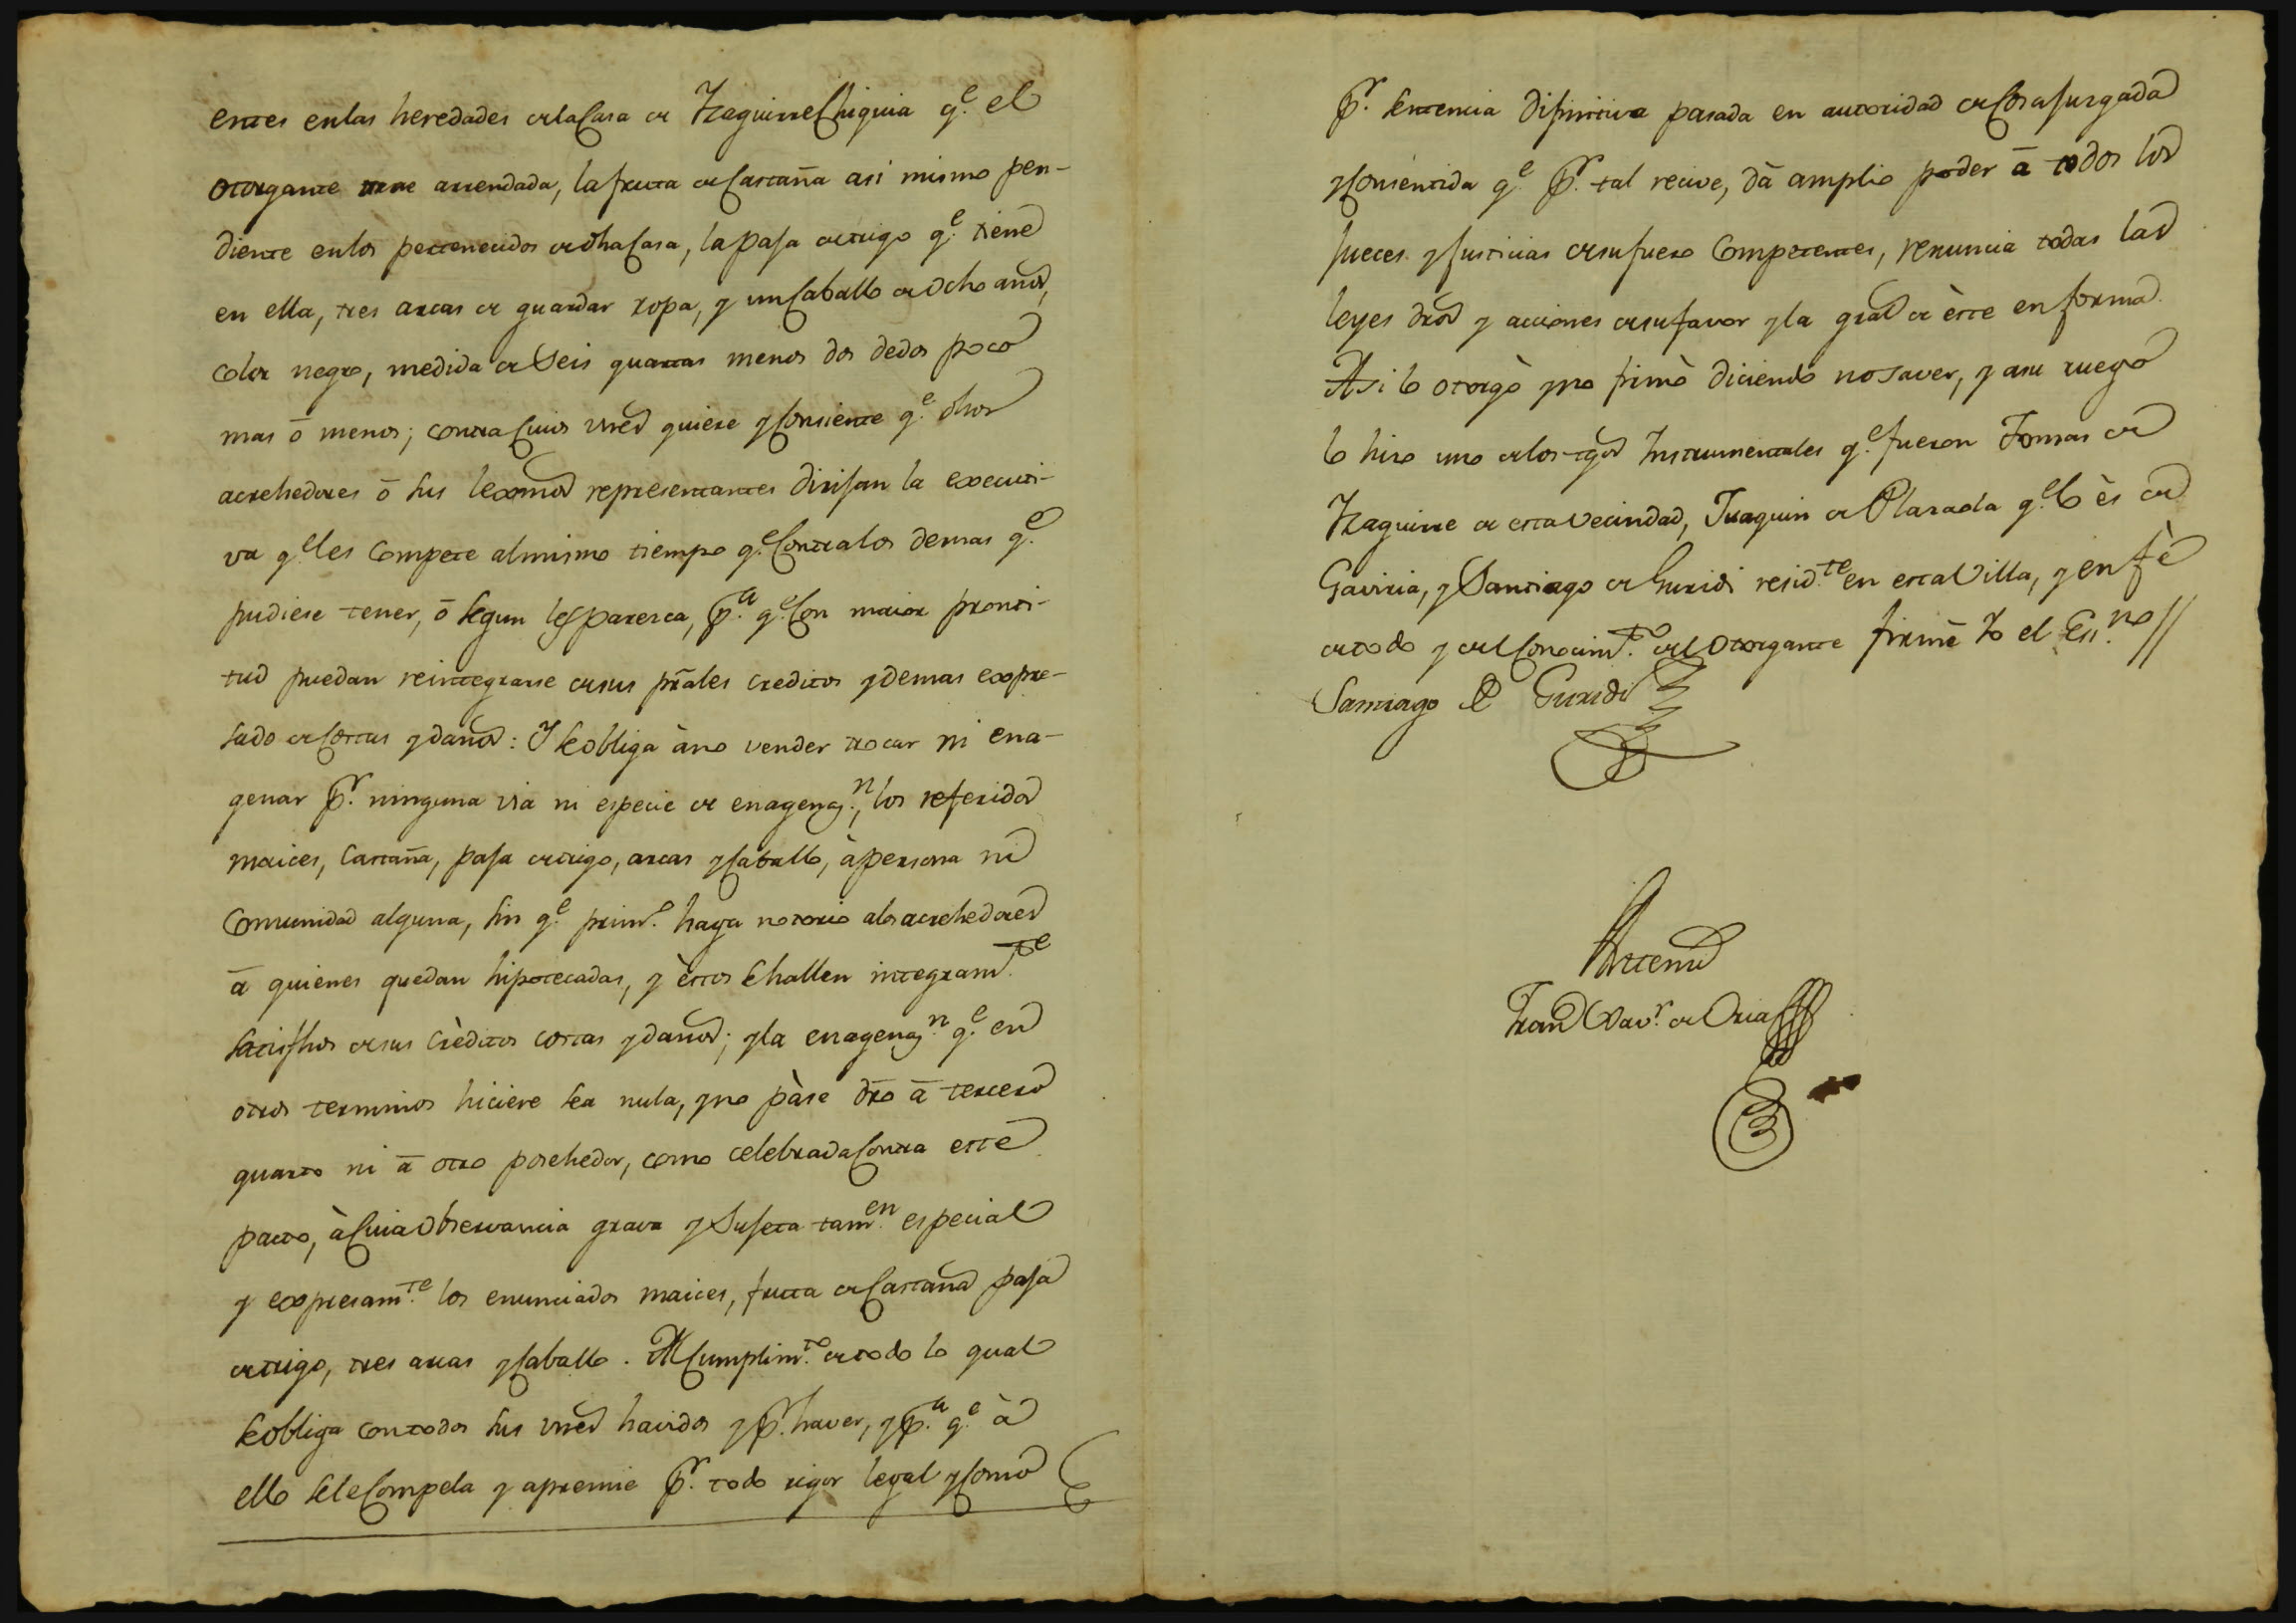 entes en las heredades de la Casa de Yzaguirre Chiquia q.e el
otorgante tiene arrendada, la fruta de Castaña asi mismo pen-
diente en los pertenecidos de dha Casa, la paja de trigo q.e tiene
en ella, tres arcas de guardar ropa, y un Caballo de ocho años,
color negro, medida de Seis quartas menos dos dedos poco
mas ō menos; contra Cuios vnes quiere y Consiente q.e dhos
acrehedores ō sus lexmos representantes dirijan la executi-
va q.e les Compete al mismo tiempo q.e Contra los demas q.e
pudiese tener, ō segun les paresca, p.a q.e Con maior pronti-
tud puedan reintegrarse de sus prāles creditos y demas expre-
sado de Costas y daños: Y se obliga à no vender trocar ni ena-
genar p.r ninguna via ni especie de enagenaz.n, los referidos
maices, Castaña, paja de trigo, arcas y Caballo, à persona ni
Comunidad alguna, sin q.e prim.o haga notorio a los acrehedores
ā quienes quedan hipotecadas, y èstos se hallen integram.te
satisfhos de sus crèditos costas y daños; y la enagenaz.n q.e en
otros terminos hiciere sea nula, y no pàse dr̄o ā tercero
quarto ni ā otro posehedor, como celebrada Contra este
pacto, à Cuia Observancia grava y Sujeta tam.en especial
y expresam.te los enunciados maices, fruta de Castaña paja
de trigo, tres arcas y Caballo. Al Cumplim.to de todo lo qual
se obliga con todos sus vnes havidos y p.r haver, y p.a q.e à
ello se le Compela y apremie p.r todo rigor legal y Como
p.r sentencia difinitiva pasada en autoridad de Cosa Juzgada
y Consentida q.e p.r tal recive, dà amplio poder ā todos los
Jueces y Justicias de su fuero Competentes, renuncia todas las
leyes dr̄os y acciones de su favor y la gral de èste en forma
Asi lo otorgò y no firmò diciendo no saver, y a su ruego
lo hizo uno de los tgos Ynstrumentales q.e fueron Tomas de
Yzaguirre de esta Vecindad, Juaquin de Olarada q.e lo ès de
Gaviria, y Santiago de Guridi resid.te en esta Villa, y en fè
de todo y del Conocim.to del Otorgante firmè Yo el Es.no //
Santiago de Guridi
Ante mi
Fran.co Xav.r de Oria